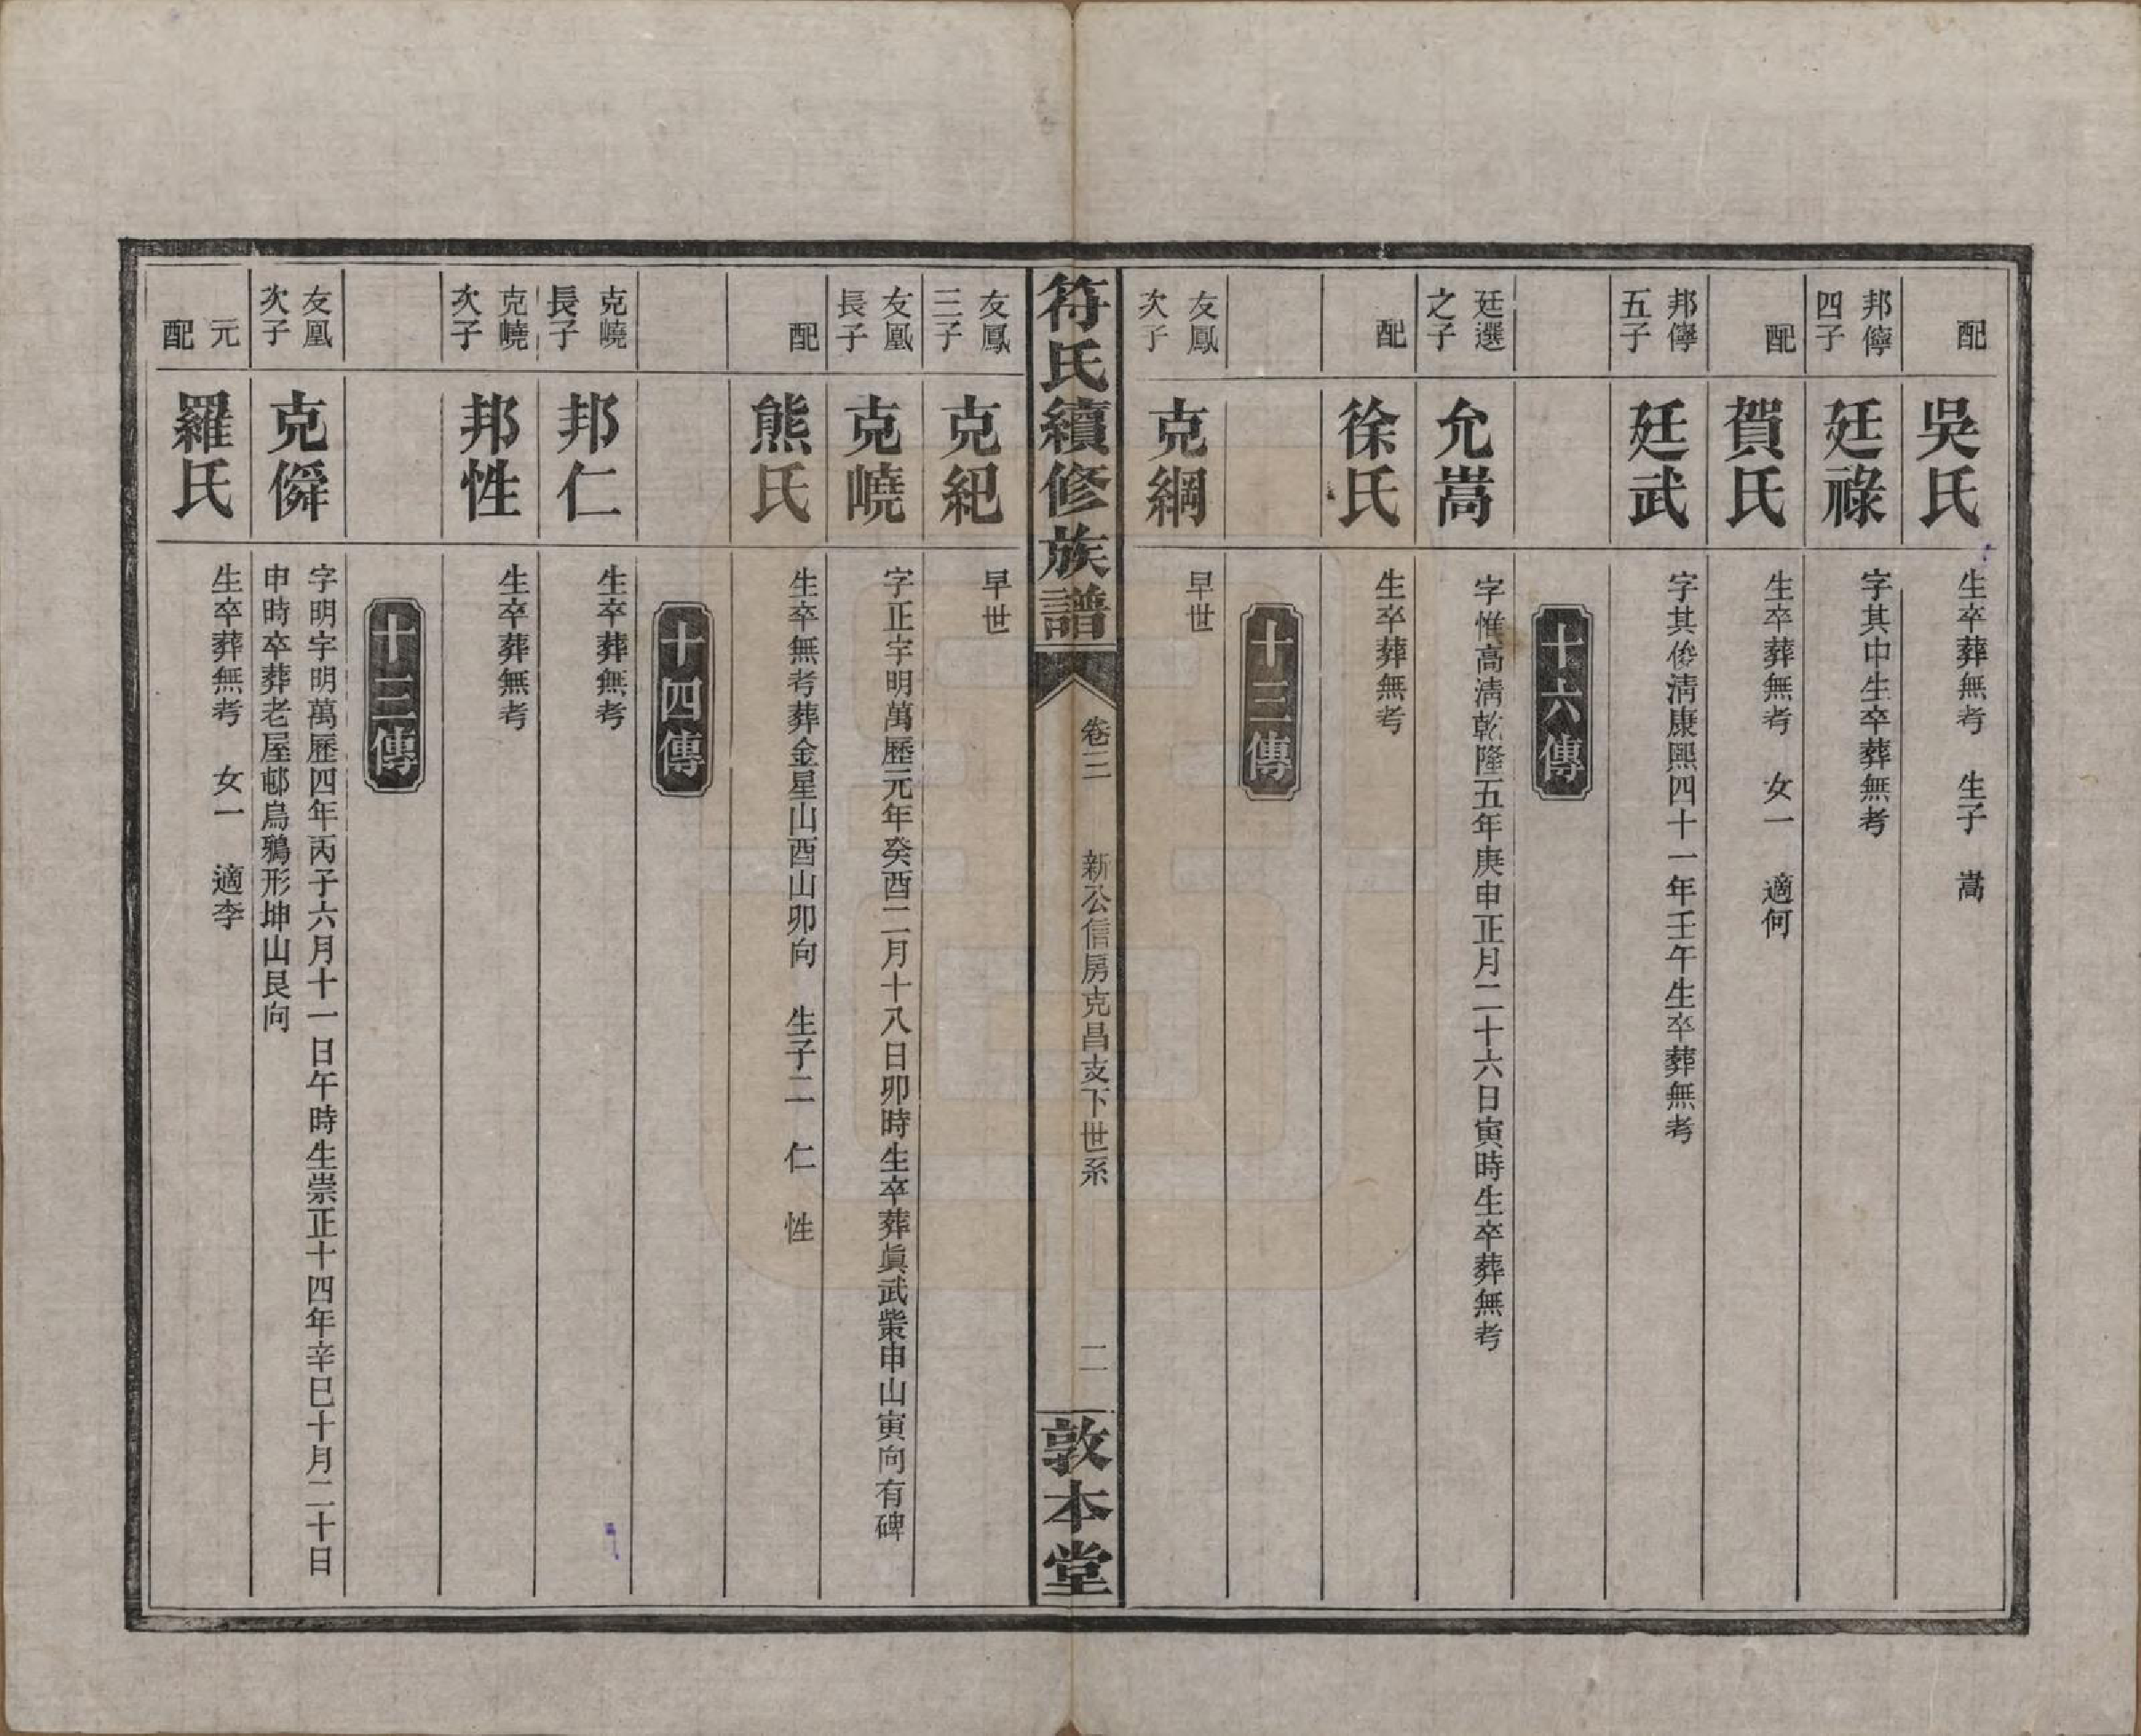 配
吳氏
生卒葬無考　生子　嵩
邦儜
四子
廷祿
字其中生卒葬無考
配
賀氏
生卒葬無考　女一　適何
邦儜
五子
廷武
字其俊淸康熙四十一年壬午生卒葬無考
十六傳
廷選
之子
允嵩
字惟高淸乾隆五年庚申正月二十六日寅時生卒葬無考
配
徐氏
生卒葬無考
十三傳
友鳳
次子
克綱
早世
符氏續修族譜
卷三
新公信房克昌支下世系
二
敦本堂
友鳳
三子
克紀
早世
友凰
長子
克嶢
字正宇明萬歷元年癸酉二月十八日卯時生卒葬眞武棠申山寅向有碑
配
熊氏
生卒無考葬金星山酉山卯向　生子二　仁　性
十四傳
克嶢
長子
邦仁
生卒葬無考
克嶢
次子
邦性
生卒葬無考
十三傳
友凰
次子
克僢
字明宇明萬歷四年丙子六月十一日午時生崇正十四年辛巳十月二十日
申時卒葬老屋邨烏鴉形坤山艮向
元
配
羅氏
生卒葬無考　女一　適李